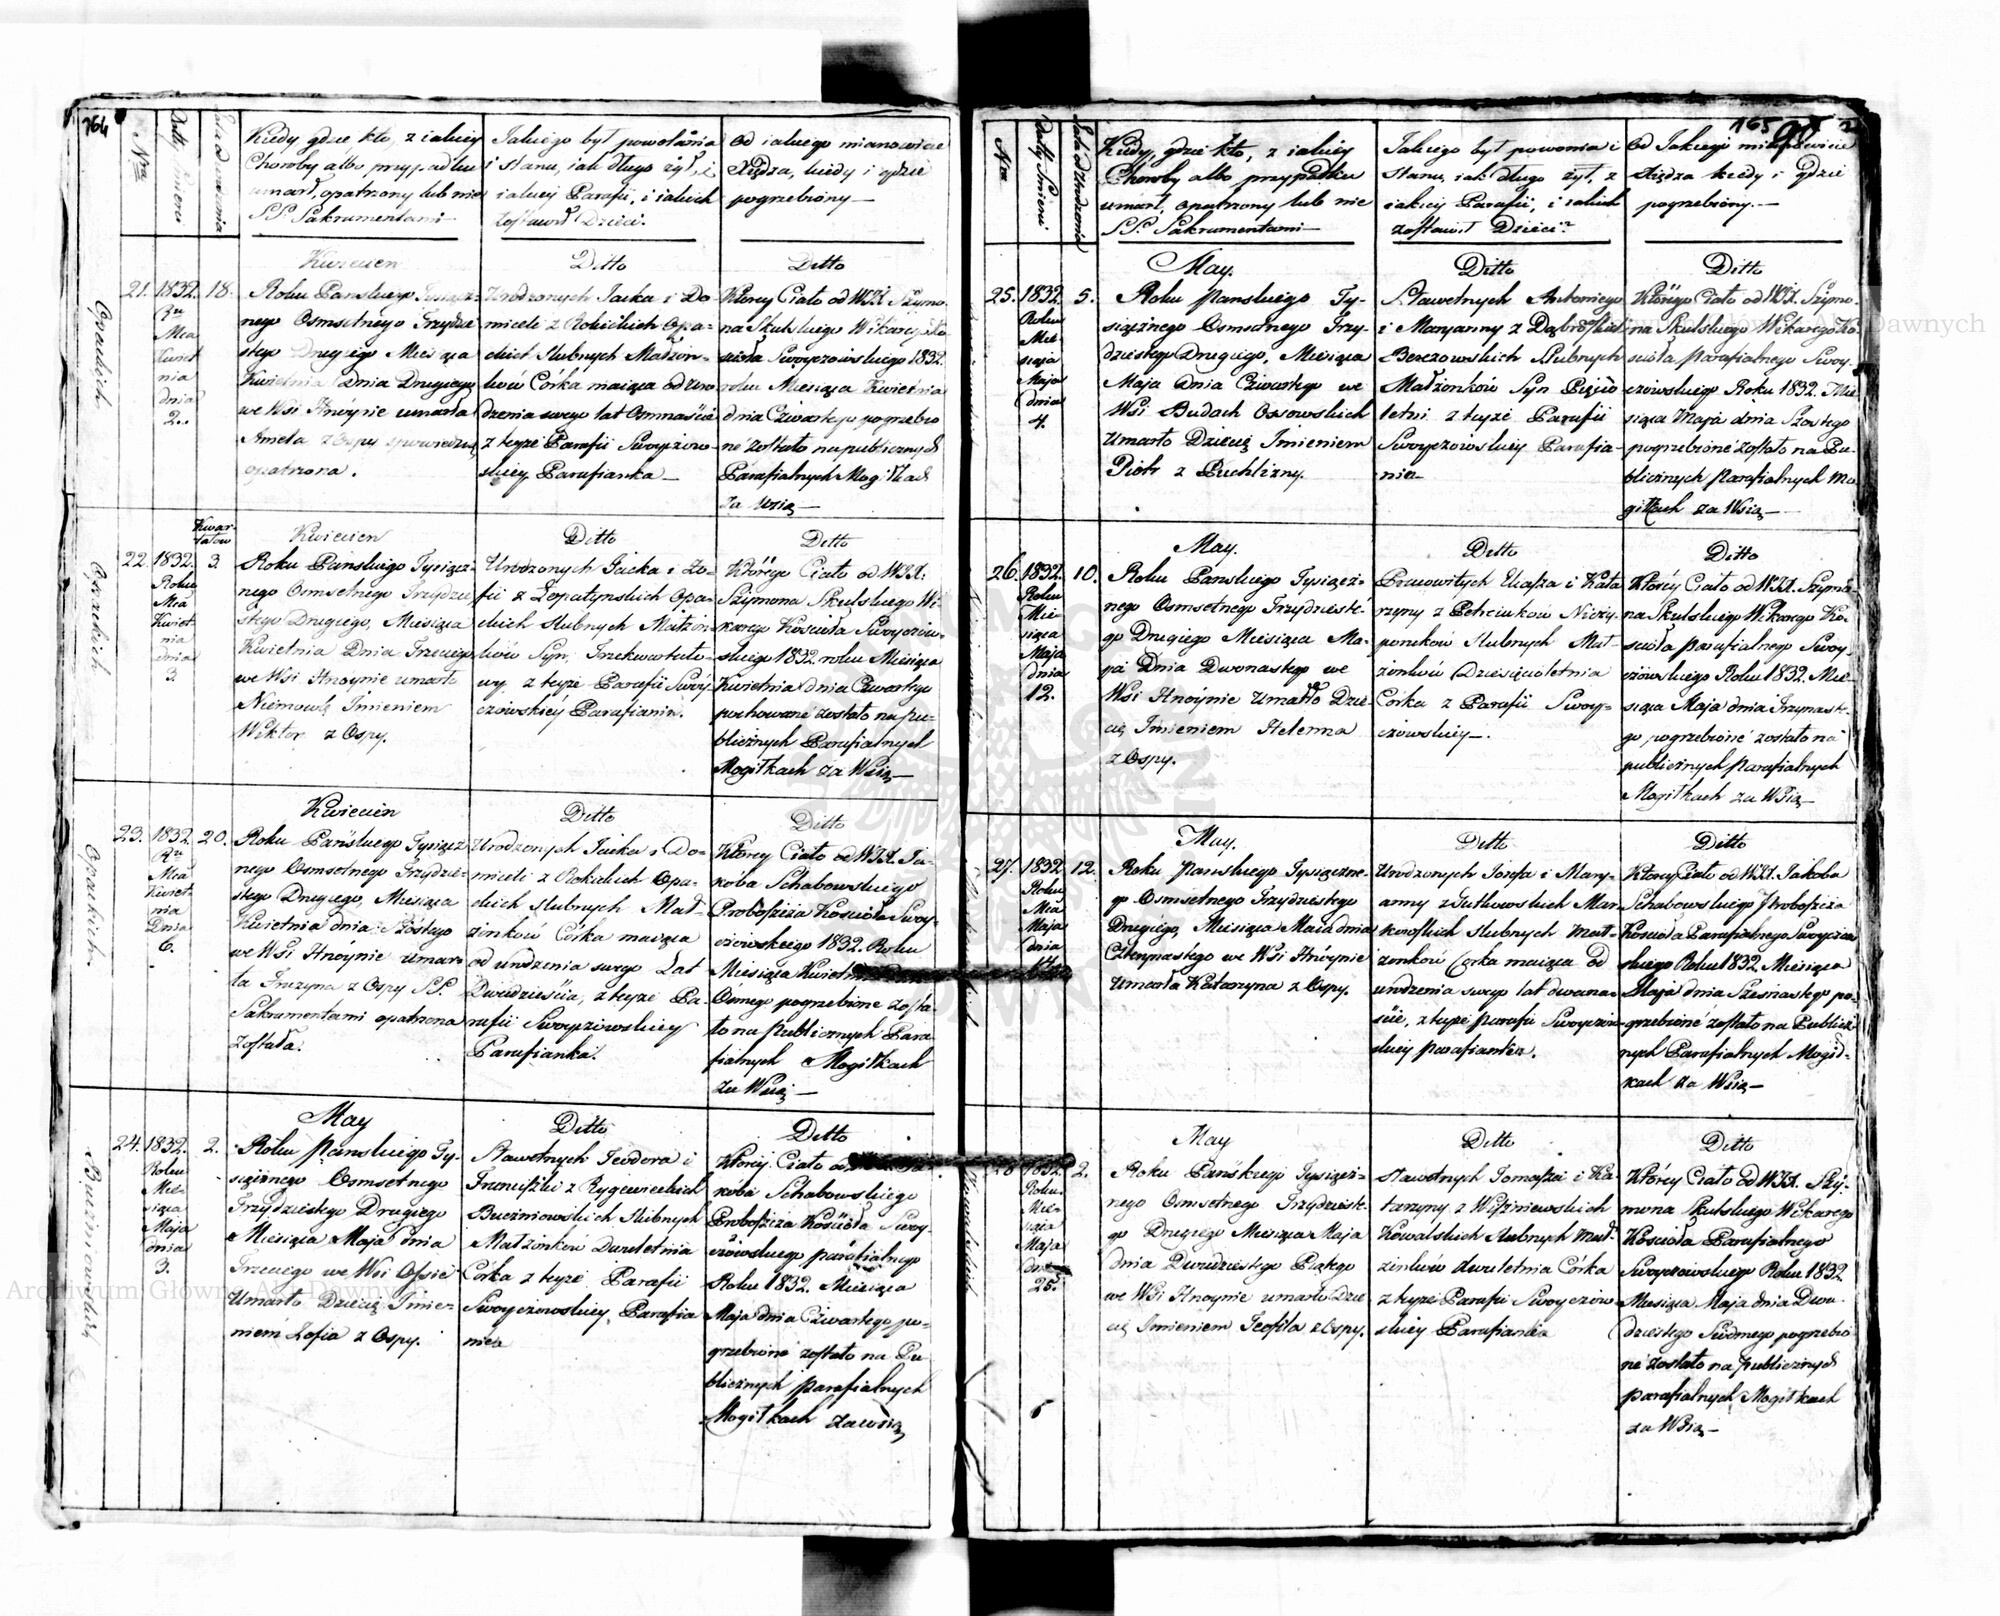 164
Nra
Daty Smierci
Lata od urodzenia
Kiedy gdzie kto, z iakiey
Choroby albo przypadku
umarł, opatrzony lub nie
S.S. Sakramentami
Jakiego był powołania
i stanu, iak długo żył, z
iakiey Parafii, i iakich
zostawił Dzieci.
Od iakiego mianowicie
Xiędza, kiedy i gdzie
pogrzebiony —
Opackich
21.
1832.
Ru
Mca
Kwiet
nia
dnia
2.
18.
Kwiecien
Roku Panskiego Tysiącz-
nego Osmsetnego Trzydzie
stego Drugiego Miesiąca
Kwietnia Dnia Drugiego
we Wsi Hnóynie umarła
Aniela z Ospy spowiedzią
opatrzona.
Ditto
Urodzonych Jacka i Do-
miceli z Rokickich Opa-
ckich slubnych Małżon-
ków Córka maiąca od uro
dzenia swego lat Osmnaście
z teyże Parafii Swoyczow-
skiey Parafianka —
Ditto
Którey Ciało od WJX. Szymo-
na Skulskiego Wikarego Ko
scioła Swoyczowskiego 1832.
roku Miesiąca Kwietnia
dnia Czwartego pogrzebio
ne zostało na publicznych
Parafialnych Mogiłkach
za Wsią —
Opackich
22.
1832.
Roku
Mca
Kwiet
nia
Dnia
3.
Kwar-
tałow
3.
Kwiecien
Roku Panskiego Tysiącz-
nego Osmsetnego Trzydzie
stego Drugiego, Miesiąca
Kwietnia Dnia Trzeciego
we Wsi Hnoynie umarło
Niemowle Imieniem
Wiktor z Ospy.
Ditto
Urodzonych Jacka i Zo-
fii z Łopatynskich Opa-
ckich slubnych Małżon
ków Syn, Trzykwartało-
wy z teyże Parafii Swoy-
czowskiey Parafianin.
Ditto
Którego Ciało od WJX.
Szymona Skulskiego Wi-
karego Kościoła Swoyczow-
skiego 1832 roku Miesiąca
Kwietnia dnia Czwartego
pochowane zostało na pu-
blicznych Parafialnych
Mogiłkach za Wsią —
Opackich.
23.
1832.
Ru
Mca
Kwiet
nia
Dnia
6.
20.
Kwiecien
Roku Pańskiego Tysiącz
nego Osmsetnego Trzydzie-
stego Drugiego, Miesiąca
Kwietnia dnia Szóstego
we Wsi Hnóynie umar-
ła z Ospy S.S.
Sakramentami opatrzona
została.
Ditto
Urodzonych Jacka i Do-
miceli z Rokickich Opa-
ckich slubnych Mał-
żonków Córka maiąca
od urodzenia swego Lat
Dwadzieścia, z teyże Pa-
rafii Swoyczowskiey
Parafianka.
Ditto
Którey Ciało od WJX. Ja-
kóba Schabowskiego
Proboszcza Kościoła Swoy-
czowskiego 1832. Roku
Miesiąca
Ósmego pogrzebione zosta-
ło na publicznych Para-
fialnych Mogiłkach
za Wsią —
24.
1832.
Roku
Mie-
siąca
Maja
dnia
3.
2.
May
Roku Panskiego Ty-
siącznego Osmsetnego
Trzydziestego Drugiego
Miesiąca Maja dnia
Trzeciego we Wsi
Umarło Dziecię Imie-
niem Zofia z Ospy.
Ditto
Sławetnych Teodora i
Franciszki z
slubnych
Małżonków Dwuletnia
Córka z teyże Parafii
Swoyczowskiey, Parafia
nka
Ditto
Którey Ciało od Ja-
kóba Schabowskiego
Proboszcza Kościoła Swoy-
czówskiego parafialnego
Roku 1832. Miesiąca
Maja dnia Czwartego po-
grzebione zostało na Pu-
blicznych parafialnych
Mogiłkach za Wsią
165
Nra
Daty Smierci
Lata od Urodzenia
Kiedy, gdzie kto, z iakiey
Choroby albo przypadku
umarł, opatrzony lub nie
S.S. Sakramentami —
Jakiego był powołania i
stanu, iak długo żył, z
iakiey Parafii, i iakich
zostawił Dzieci?
Od Jakiego mianowicie
Xiędza kiedy i gdzie
pogrzebiony. —
25.
1832.
Roku
Mie
siąca
Maja
dnia
4.
5.
May.
Roku Panskiego Ty-
siącznego Osmsetnego Trzy-
dziestego Drugiego, Miesiąca
Maja dnia Czwartego we
Wsi Budach Ossowskich
Umarło Dziecię Imieniem
Piotr z Puchlizny.
Ditto
Sławetnych Antoniego
i Maryanny z Dąbrowskich
Berezowskich slubnych
Małżonków Syn Pięcio
letni z teyże Parafii
Swoyczowskiey Parafia-
nin
Ditto
Którego Ciało od WJX. Szymo-
na Skulskiego Wikarego Ko-
scioła parafialnego Swoy-
czówskiego Roku 1832. Mie
siąca Maja dnia Szostego
pogrzebione zostało na Pu-
blicznych parafialnych Mo
giłkach za Wsią —
26.
1832.
Roku
Mie-
siąca
Maja
dnia
12.
10.
May.
Roku Panskiego Tysiącz-
nego Osmsetnego Trzydzieste-
go Drugiego Miesiąca Ma-
ja Dnia Dwonastego we
Wsi Hnoynie umarło Dzie-
cię Imieniem Helenna
z Ospy.
Ditto
Pracowitych Łukasza i Kata
rzyny z
slubnych Mał-
żonków Dziesięcioletnia
Córka z Parafii Swoy-
czowskiey —.
Ditto
Którey Ciało od WJX. Szymo-
na Skulskiego Wikarego Ko-
scioła parafialnego Swoy-
czówskiego Roku 1832. Mie-
siąca Maja dnia Trzynaste-
go pogrzebione zostało na
publicznych parafialnych
Mogiłkach za Wsią —
27.
1832
Roku
Mca
Maja
dnia
12.
May.
Roku Panskiego Tysiączne-
go Osmsetnego Trzydziestego
Drugiego, Miesiąca Maia dnia
Czternastego we Wsi Hnóynie
Umarła Katarzyna z Ospy.
Ditto
Urodzonych Józefa i Mary-
anny z Mar-
kowskich slubnych Mał-
żonków Corka maiąca od
urodzenia swego lat dwana-
ście, z teyże parafii Swoyczow-
skiey parafianka.
Ditto
Którey Ciało od WJX. Jakoba
Schabowskiego Proboszcza
Kościoła Parafialnego Swoyczow
skiego Roku 1832. Miesiąca
Maja dnia Szesnastego po-
grzebione zostało na Publicz-
nych Parafialnych Mogił-
kach za Wsią —
28
1832.
Roku
Mie-
siąca
Maja
dnia
25.
2.
May
Roku Pańskiego Tysiącz-
nego Osmsetnego Trzydzieste-
go Drugiego Miesiąca Maja
dnia Dwudziestego Piątego
we Wsi Hnoynie umarło Dzie
cię Imieniem Teofila z Ospy.
Ditto
Sławetnych Tomasza i Ka-
tarzyny z Wiszniewskich
Kowalskich slubnych Mał-
żonków dwuletnia Córka
z teyże Parafii Swoyczow-
skiey Parafianka
Ditto
Którey Ciało od WJX. Szy-
mona Skulskiego Wikarego
Kościoła Parafialnego
Swoyczowskiego Roku 1832
Miesiąca Maja dnia Dwu-
dziestego Siódmego pogrzebio
ne zostało na publicznych
parafialnych Mogiłkach
za Wsią —
Archiwum Główne Akt Dawnych